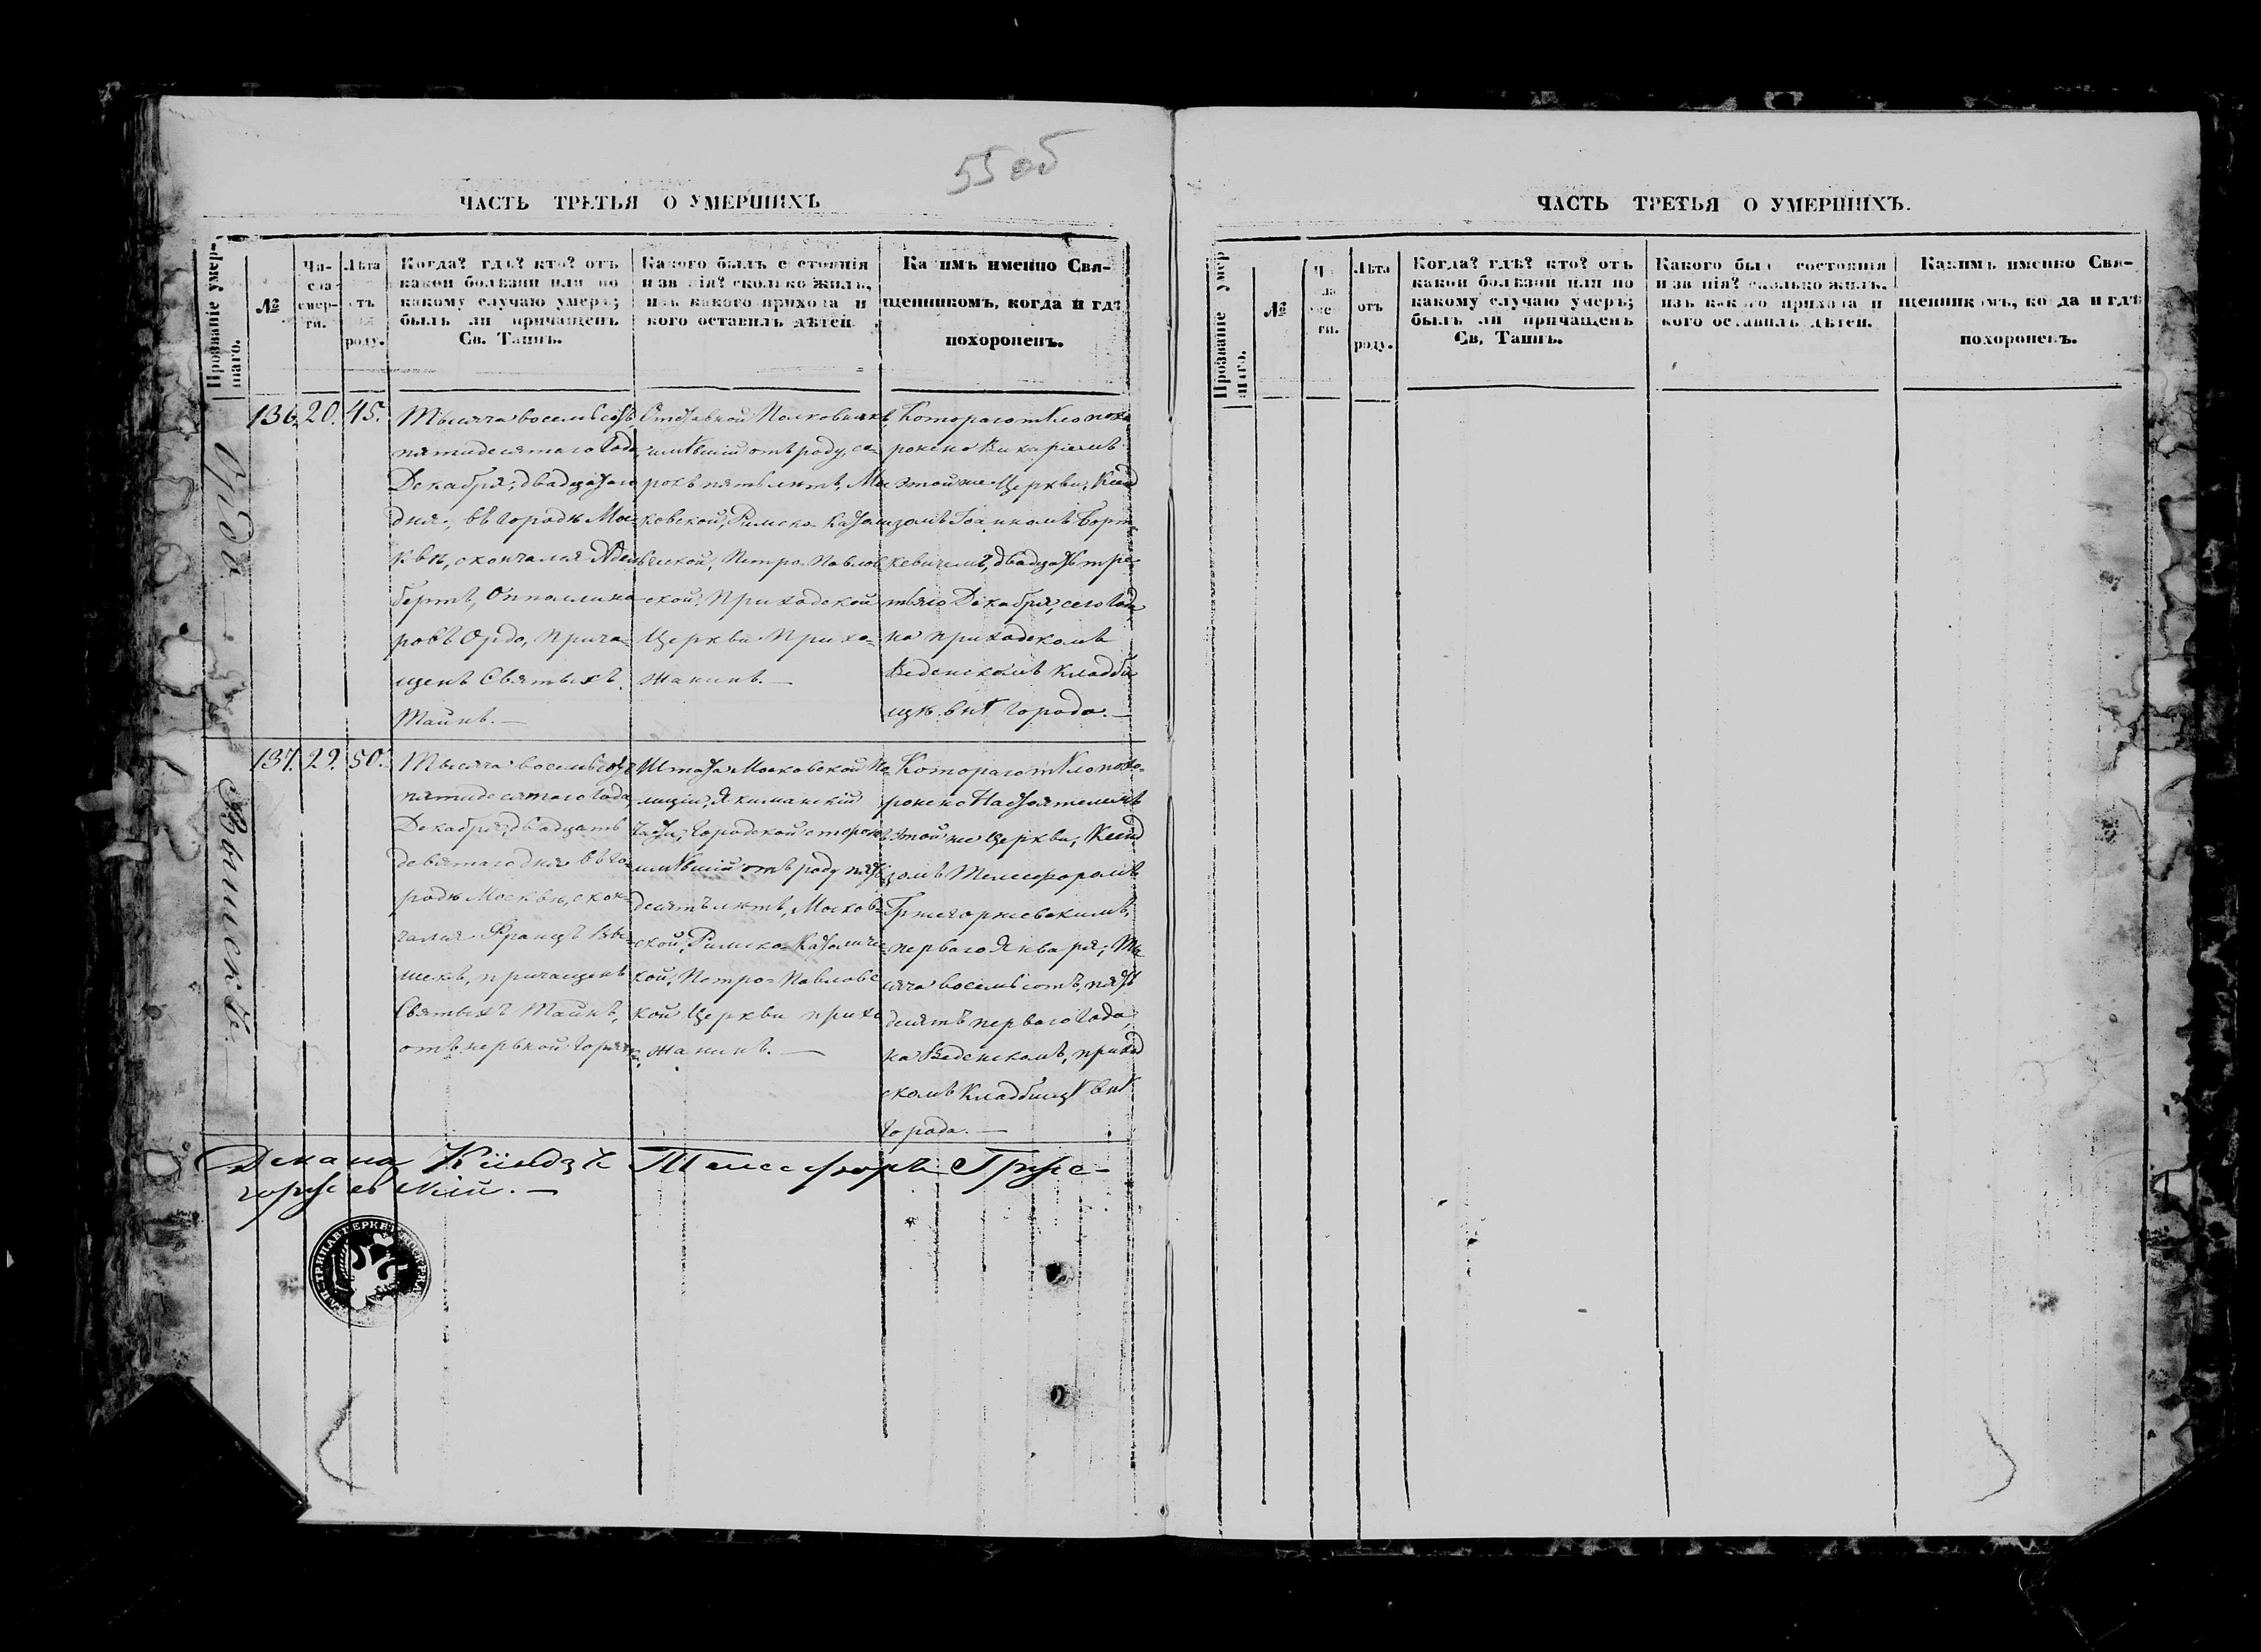 55 об
ЧАСТЬ ТРЕТЬЯ О УМЕРШИХЪ
Прозваніе умер-
шаго.
№
Чи-
сла
смер-
ти.
Лѣта
отъ
роду.
Когда? гдѣ? кто? отъ
какой болѣзни или по
какому случаю умеръ;
былъ ли причащенъ
Св. Таинъ.
Какого былъ состоянія
и званія? сколько жилъ,
изъ какого прихода и
кого оставилъ дѣтей
Какимъ именно Свя-
щенникомъ, когда и гдѣ
похороненъ.
Ордо
136. 20. 45.
Тысяча восемьсотъ
пятидесятаго Года
Декабря, двадцатаго
дня, въ городѣ Мос-
квѣ, скончался Адель
бертъ, Апполина
ровъ Ордо, прича-
щенъ Святыхъ
Таинъ. —
Отставной Полковникъ,
имѣвшій отъ роду, со-
рокъ пять лѣтъ, Мос
ковской, Римско-Католи
ческой, Петро-Павлов
ской, Приходской
Церкви Прихо-
жанинъ. —
Котораго тѣло похо
ронено Викаріемъ
этой же Церкви, Ксенд
зомъ Іоанномъ Борт
кевичемъ, двадцать тре
тьяго Декабря, сего Года,
на приходскомъ
Веденскомъ кладби
щѣ внѣ города. —
Вышекъ
137. 29. 50.
Тысяча восемьсотъ
пятидесятаго Года,
Декабря, двадцать
девятаго дня въ го-
родѣ Москвѣ, скон-
чался Францъ Вы-
шекъ, причащенъ
Святыхъ Таинъ,
отъ нервной горячк
и.
Штата Московской По
лиціи, Якиманской
Части, Городской сторожъ
имѣвшій отъ роду пять
десятъ лѣтъ, Москов-
ской, Римско-Католичес
кой, Петро-Павловс
кой Церкви прихо
жанинъ. —
Котораго тѣло похо-
ронено Настоятелемъ
этой же Церкви, Ксенд
зомъ Телесфоромъ
Гржегоржевскимъ,
перваго Января, Ты
сяча восемьсотъ, пять
десятъ перваго Года,
на Веденскомъ, приход
скомъ Кладбищѣ внѣ
города. —
Деканъ Ксендзъ Телесфоръ Грже-
горжевскій. —
ЧАСТЬ ТРЕТЬЯ О УМЕРШИХЪ.
Прозваніе умер
шаго.
№
Чи
сла
сме
ти.
Лѣта
отъ
роду.
Когда? гдѣ? кто? отъ
какой болѣзни или по
какому случаю умеръ;
былъ ли причащенъ
Св. Таинъ.
Какого былъ состоянія
и званія? сколько жилъ,
изъ какого прихода и
кого оставилъ дѣтей.
Какимъ именно Свя-
щенникомъ, когда и гдѣ
похороненъ.